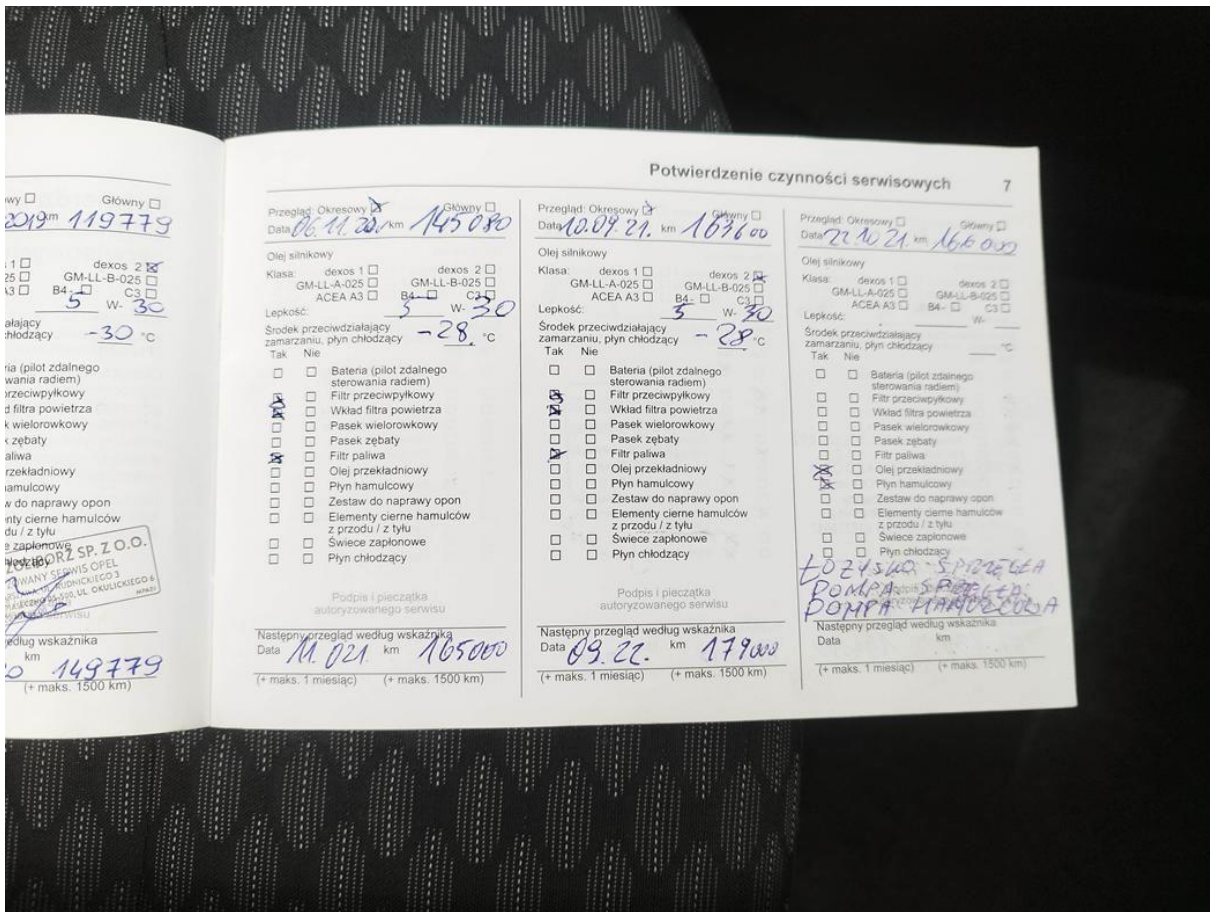 Potwierdzenie czynności serwisowych 7
wy Główny
2019 km 119779
1 dexos 2
25 GM-LL-B-025
A3 B4- C3
5 W- 30
ałający
chłodzący -30 °C
ria (pilot zdalnego
wania radiem)
przeciwpyłkowy
d filtra powietrza
k wielorowkowy
k zębaty
aliwa
rzekładniowy
amulcowy
w do naprawy opon
enty cierne hamulców
du / z tyłu
e zapłonowe
SP. Z O.O.
SERWIS OPEL
UL. OKULICKIEGO 6
edług wskaźnika
km
149779
(+ maks. 1500 km)
Przegląd: Okresowy Główny
Data 06.11.20 km 145080
Olej silnikowy
Klasa: dexos 1 dexos 2
GM-LL-A-025 GM-LL-B-025
ACEA A3 B4- C3
Lepkość: 5 W- 30
Środek przeciwdziałający
zamarzaniu, płyn chłodzący -28 °C
Tak Nie
Bateria (pilot zdalnego
sterowania radiem)
Filtr przeciwpyłkowy
Wkład filtra powietrza
Pasek wielorowkowy
Pasek zębaty
Filtr paliwa
Olej przekładniowy
Płyn hamulcowy
Zestaw do naprawy opon
Elementy cierne hamulców
z przodu / z tyłu
Świece zapłonowe
Płyn chłodzący
Podpis i pieczątka
autoryzowanego serwisu
Następny przegląd według wskaźnika
Data 11.021 km 165000
(+ maks. 1 miesiąc) (+ maks. 1500 km)
Przegląd: Okresowy Główny
Data 10.09.21. km 163600
Olej silnikowy
Klasa: dexos 1 dexos 2
GM-LL-A-025 GM-LL-B-025
ACEA A3 B4- C3
Lepkość: 5 W- 30
Środek przeciwdziałający
zamarzaniu, płyn chłodzący -28 °C
Tak Nie
Bateria (pilot zdalnego
sterowania radiem)
Filtr przeciwpyłkowy
Wkład filtra powietrza
Pasek wielorowkowy
Pasek zębaty
Filtr paliwa
Olej przekładniowy
Płyn hamulcowy
Zestaw do naprawy opon
Elementy cierne hamulców
z przodu / z tyłu
Świece zapłonowe
Płyn chłodzący
Podpis i pieczątka
autoryzowanego serwisu
Następny przegląd według wskaźnika
Data 09.22. km 179000
(+ maks. 1 miesiąc) (+ maks. 1500 km)
Przegląd: Okresowy Główny
Data 22.10 21 km 166000
Olej silnikowy
Klasa: dexos 1 dexos 2
GM-LL-A-025 GM-LL-B-025
ACEA A3 B4- C3
Lepkość: W-
Środek przeciwdziałający
zamarzaniu, płyn chłodzący °C
Tak Nie
Bateria (pilot zdalnego
sterowania radiem)
Filtr przeciwpyłkowy
Wkład filtra powietrza
Pasek wielorowkowy
Pasek zębaty
Filtr paliwa
Olej przekładniowy
Płyn hamulcowy
Zestaw do naprawy opon
Elementy cierne hamulców
z przodu / z tyłu
Świece zapłonowe
Płyn chłodzący
ŁOŻYSKO SPRZĘGŁA
POMPA SPRZĘGŁA
POMPA HAMULCOWA
Następny przegląd według wskaźnika
Data km
(+ maks. 1 miesiąc) (+ maks. 1500 km)